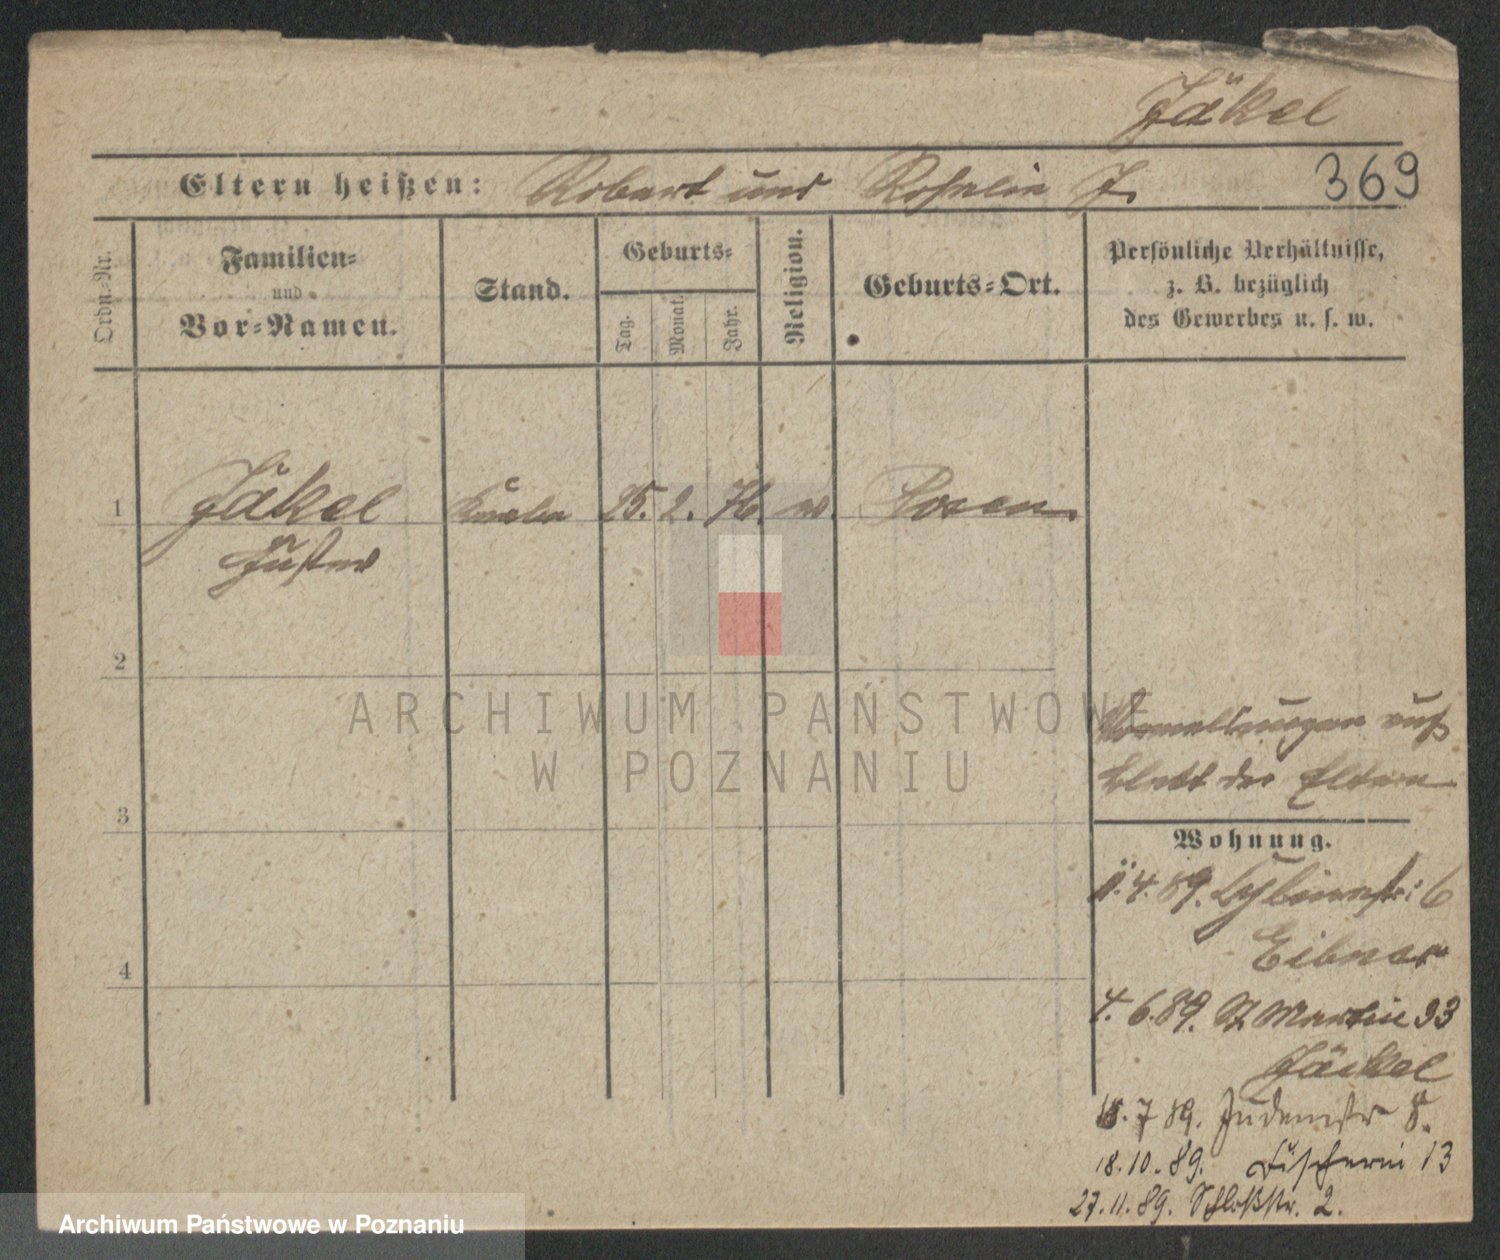 Jäkel
Eltern heißen: Robert und Rosalie J. 369
Ordn.-Nr.
Familien-
und
Vor-Namen.
Stand.
Geburts-
Tag.
Monat.
Jahr.
Religion.
Geburts-Ort.
Persönliche Verhältnisse,
z. B. bezüglich
des Gewerbes u. s. w.
1 Jäkel 25. 2. 76. Posen
Gustav
2
3
4
ARCHIWUM PAŃSTWOWE
W POZNANIU
Vormeldungen auf
Blatt der Eltern
Wohnung.
4. 89. 6
Eibner
4. 6. 89. St Martin 33
Jäckel
18. 7 89. Judenstr 8.
18. 10. 89. Fischerei 13
27. 11. 89. Schloßstr. 2.
Archiwum Państwowe w Poznaniu